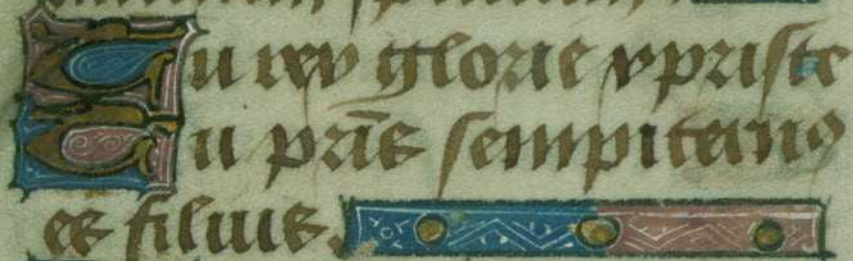 Tu rex glorie xpriste
Tu pr̄is sempiternꝰ
es filius.